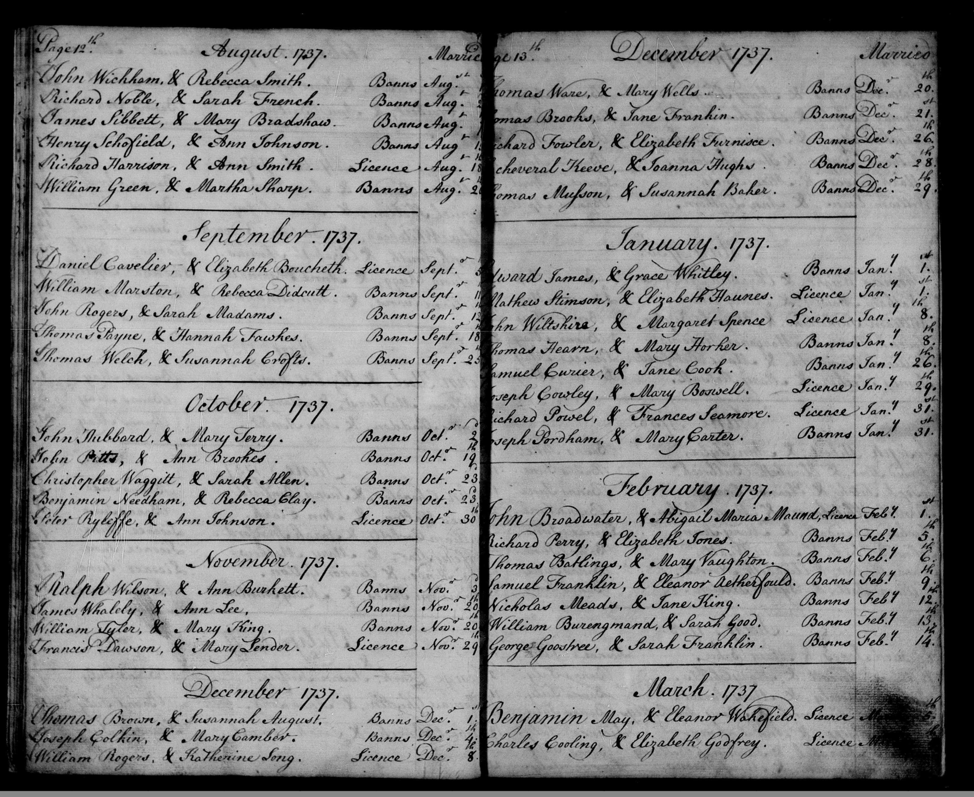 Page 12th August. 1737. Married
John Wickham, & Rebecca Smith. Banns Aug.
Richard Noble, & Sarah French. Banns Aug.
James Sibbett, & Mary Bradshaw. Banns Aug.
Henry Schofield, & Ann Johnson. Banns Aug
Richard Harrison, & Ann Smith. Licence Aug.
William Green, & Martha Sharp. Banns Aug.
September. 1737.
Daniel Cavelier, & Elizabeth Boucheth. Licence Sept.
William Marston, & Rebecca Didcutt. Banns Sept.
John Rogers, & Sarah Madams. Banns Sept.
Thomas Payne, & Hannah Fawkes. Banns Sept. 18
Thomas Welch, & Susannah Crofts. Banns Sept. 25
October. 1737.
John Hubbard, & Mary Terry. Banns Oct. 2
John Pitts, & Ann Brookes. Banns Oct. 19
Christopher Waggitt, & Sarah Allen. Banns Oct. 23
Benjamin Needham, & Rebecca Clay. Banns Oct. 23
Peter Ryliffe, & Ann Johnson. Licence Oct. 30
November. 1737.
Ralph Wilson, & Ann Burkett. Banns Nov. 3
James Whalely, & Ann Lee, Banns Nov. 20
William Tyler, & Mary King. Banns Nov. 20
Francis Dawson, & Mary Lender. Licence Nov. 29
December 1737.
Thomas Brown, & Susannah August. Banns Dec. 1
Joseph Colkin, & Mary Camber. Banns Dec. 4
William Rogers, & Katherine Long. Licence Dec. 8
ge 13th December 1737. Married
homas Ware, & Mary Wells. Banns Dec. 20
omas Brooks, & Jane Frankin. Banns Dec. 21
chard Fowler, & Elizabeth Furnisce. Banns Dec. 26
cheveral Keeve, & Joanna Hughs Banns Dec. 28
omas Musson, & Susannah Baker. Banns Dec. 29
January. 1737.
dward James, & Grace Whitley. Banns Jan.y 1
Mathew Stimson, & Elizabeth Haunes. Licence Jan.y 1
ohn Wiltshire, & Margaret Spence Licence Jan.y 8
homas Hearn, & Mary Horker. Banns Jan.y 8
amuel Curier, & Jane Cook. Banns Jan.y 26
oseph Cowley, & Mary Boswell. Licence Jan.y 29
Richard Powel, & Frances Seamore. Licence Jan.y 31
oseph Pordham, & Mary Carter. Banns Jan.y 31
February. 1737.
John Broadwater, & Abigail Maria Maund, Licence Feb.y 1
Richard Perry, & Elizabeth Jones. Banns Feb.y 5
Thomas Batlings, & Mary Vaughton. Banns Feb.y 6
Samuel Franklin, & Eleanor Aetherfould. Banns Feb.y 9
Nicholas Meads, & Jane King. Banns Feb.y 12
William Burengmand, & Sarah Good. Banns Feb.y 13
George Goostree, & Sarah Franklin. Banns Feb.y 14
March. 1737
Benjamin May, & Eleanor Wakefield. Licence
Charles Cooling, & Elizabeth Godfrey. Licence